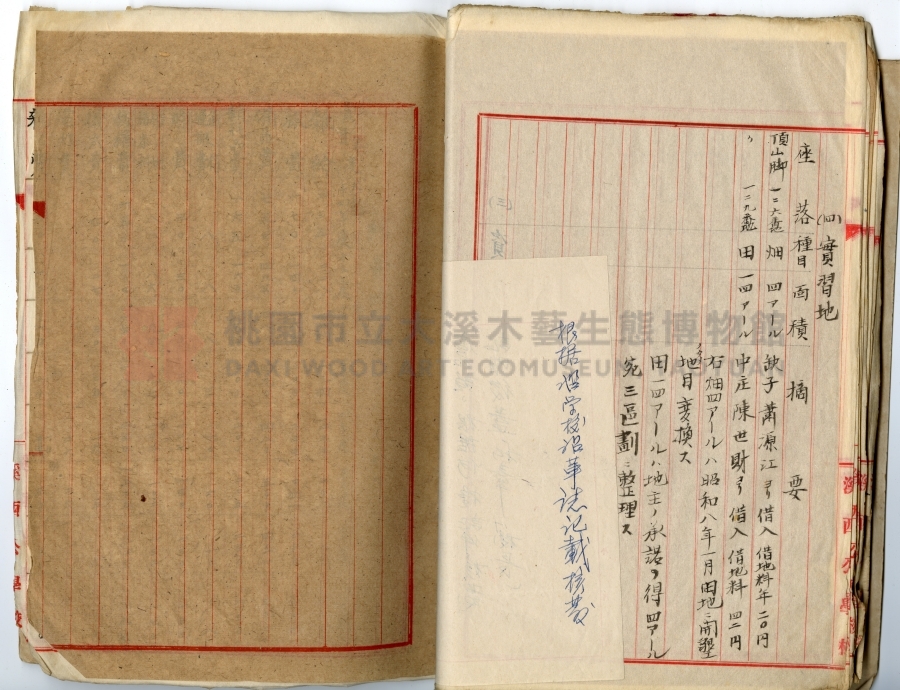 (四)實習地
座落 種目 面積 摘要
頂山脚 一二六番地 畑 四アール 缺子蕭源江ヨリ借入 借地料年二〇円
〃 一二九番地 田 一四アール 中庄陳世財ヨリ借入 借地料 四二円
右畑四アールハ昭和八年一月田地ニ開墾
地目変換ス
田一四アールハ地主ノ承諾ヲ得四アール
宛三區劃ニ整理ス
根据沿学校沿革誌記載
桃園市立大溪木藝生態博物館
DAXI WOOD ART ECOMUSEUM, TAOYUAN
溪西公學校